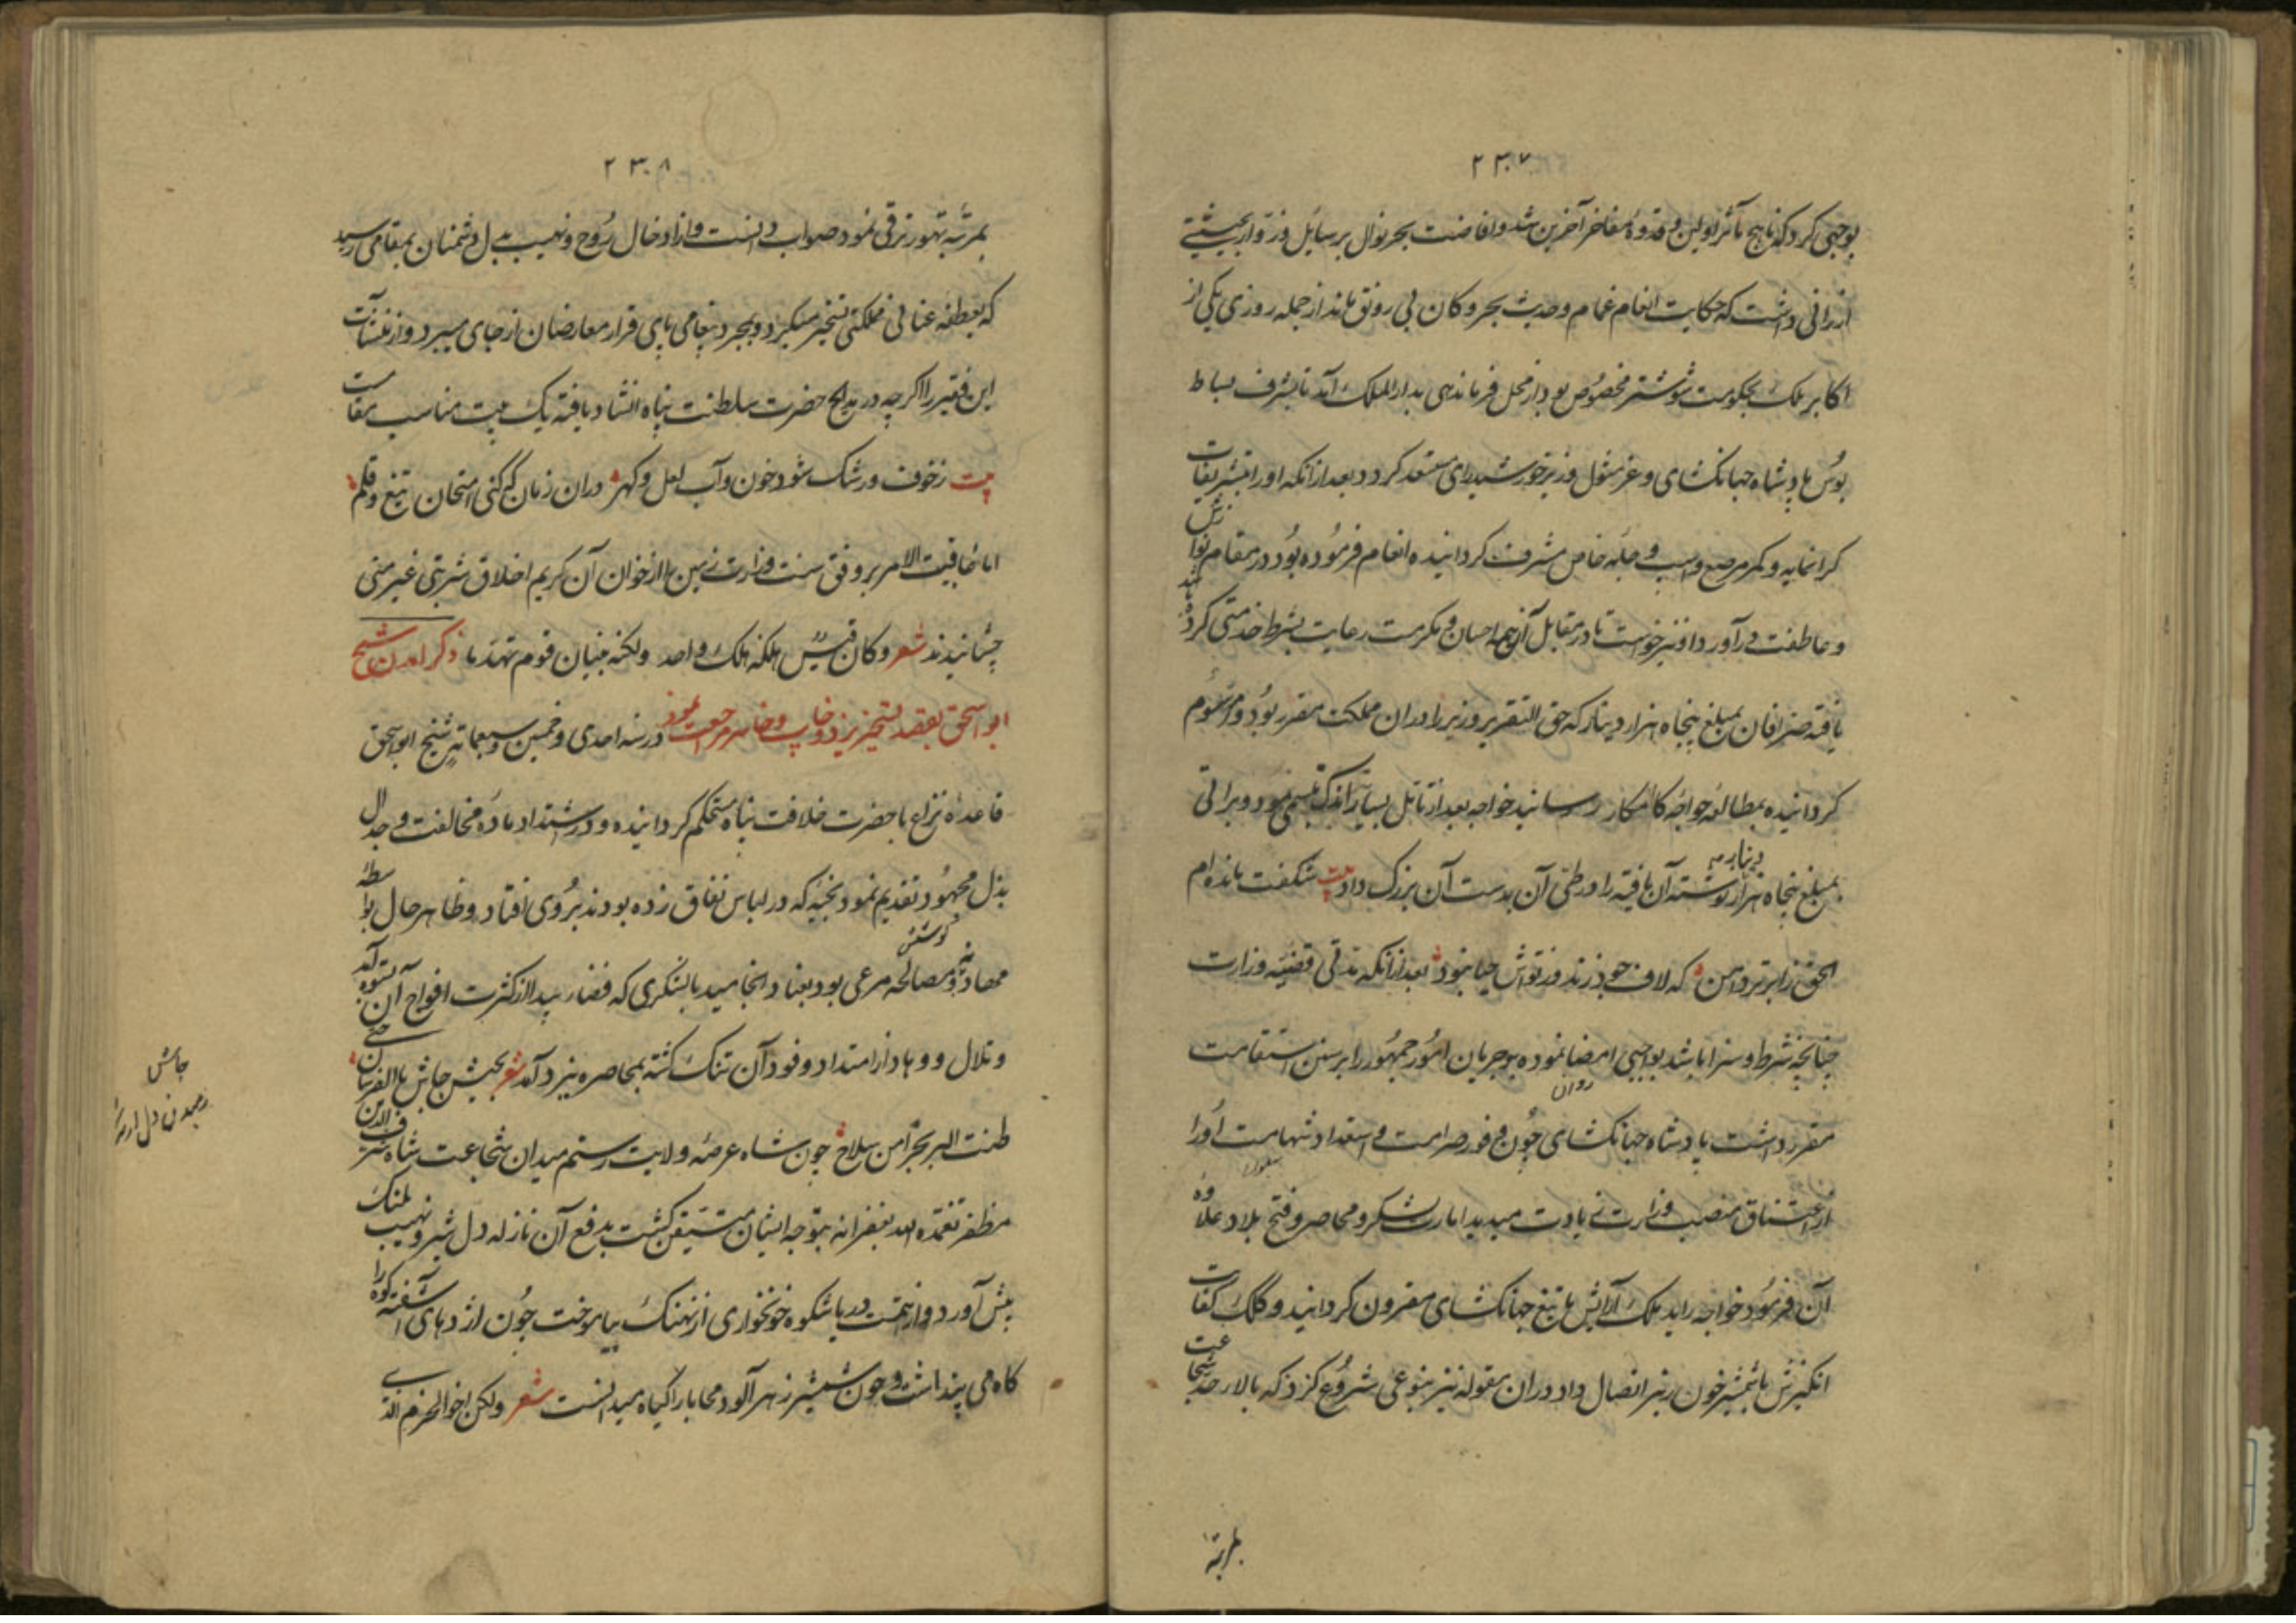 ۲۳۷
بوجهی کرد که ناسخ مآثر اولین و قدوهٔ مفاخر آخرین شد و افاضت بحر نوال بر سایل و زوار بحیثیتی
ارزانی داشت که حکایت انعام غمام و حدیث بحر و کان بی رونق ماند از جمله روزی یکی از
اکابر ملک بحکومت شوشتر مخصوص بود از محل فرماندهی بدار الملک آمد تا بشرف بساط
بوس پادشاه جهانکشای و عز مثول وزیر خورشید رای مستعد کردد بعد از انکه او را بتشریفات
کرانمایه و کمر مرصع و اسب و جبهٔ خاص مشرف کردانیده انعام فرموده بود در مقام نوازش
و عاطفت در آورد او نیز خواست تا در مقابل آن همه احسان و مکرمت رعایت شرط خدمتی کرده باشد
یافته صرافان بمبلغ پنجاه هزار دینار که حق التقریر وزیر را در ان مملکت مقرر بود و مرسوم
کردانیده بمطالعهٔ خواجهٔ کامکار رسانید خواجه بعد از تامل بسیار اندک تبسمی نمود و براتی
بمبلغ پنجاه هزار دینار نوشته آن یافته را در طی آن بدست آن بزرک داد بیت شکفت مانده ام
الحق ز ابر تر دامن که لاف جود زند وز توش حیا نبود بعد از انکه مدتی قضیهٔ وزارت
چنانچه شرط و سزا باشد بواجبی امضا نموده بود جریان امور جمهور را بر سنن استقامت
روان
مقرر داشت پادشاه جهانکشای چون وفور صرامت و استعداد شهامت او را
از اعتناق منصب وزارت زیادت میدید امارت لشکر و محاصر و فتح بلاد علاوهٔ
آن فرمود خواجه رای ملک آرایش با تیغ جهانکشای مقرون کردانید و کلک کفایت
انکیزش با شمشیر خون ریز اتصال داد و در ان مقوله نیز بنوعی شروع کرد که بالا از حد شجاعت
بمرتبهٔ
۲۳۸
بمرتبهٔ تهور ترقی نمود صواب دانست و از ادخال روح و نهیب بدل دشمنان بمقامی رسید
که بعطفه عنانی مملکتی تسخیر میکرد و بمجرد پیغامی پای قرار معارضان از جای میبرد و از منشآت
این فقیر را اکر چه در مدایح حضرت سلطنت پناه انشاد یافته یک بیت مناسب مقامست
بیت ز خوف و رشک شود خون و آب لعل و کهر دران زمان که کنی امتحان تیغ و قلم
اما عاقبت الامر بر وفق سنت وزارت زمین را از خوان آن کریم اخلاق شربتی غیر مهنی
چشانیدند شعر و کان قیس هلکه هلک واحد ولکنه بنیان قوم تهدما ذکر آمدن شیخ
ابو اسحق بقصد تسخیر یزد و خایب و خاسر مراجعت نمود در سنه احدی و خمسین و سبعمایة شیخ ابو اسحق
قاعدهٔ نزاع با حضرت خلافت پناه مستحکم کردانیده و در اشتداد ماده مخالفت و جدال
بذل مجهود تقدیم نمود بخیه که در لباس نفاق زده بودند بروی افتاد و ظاهر حال بواسطهٔ
کوشش
مهادنه و مصالحه مرعی بود بعناد انجامید با لشکری که فضار بیدا از کثرت افواج آن بستوه آمد
و تلال و وهاد از امتداد وفود آن تنک کشته بمحاصره یزد آمد شعر بجیش جاش بالفرسان حتی
ظننت البر بحرا من سلاح چون شاه عرصهٔ ولایت رستم میدان شجاعت شاه شرف الدین
مظفر تغمده الله بغفرانه بتوجه ایشان متیقن کشت بدفع آن نازله دل شیر و نهیب پلنک
پیش آورد و از همت دریا شکوه خونخواری از نهنک بیاموخت چون اژدهای آشفته کوه را
کاه می پنداشت و چون شمشیر زهر آلود محابا را کیاه میدانست شعر ولکن اخو الحزم الذی
جاش
رمیدن دل از